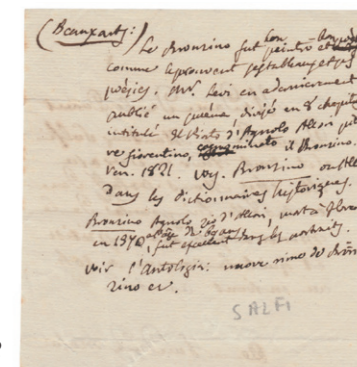 (Beaux arts:)
Le Bronzino fut bon peintre et bon
comme le prouvent ses tableaux et ses
poésies. Mr. Levi en a dernièrement
publié un poëme, divisé en 8 chapit
intitulé Il Piato d'Agnolo Allori pit
re fiorentino, cognominato il Bronzino.
Ven. 1821. voy. Bronzino ou All
Dans les dictionnaires historiques.
Bronzino Agnolo, dit d'Allori, mort à Flore
en 1570, âgé de 69 ans, fut excellent dans les portraits.
voir l'Antologia: nuove rime de Bron
zino ec.
SALFI